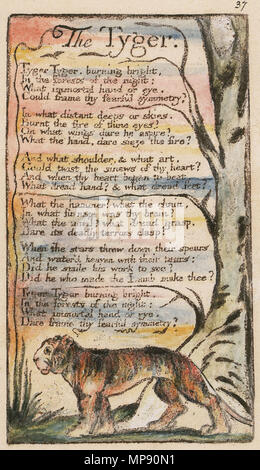 37
The Tyger.
Tyger Tyger, burning bright,
In the forests of the night;
What immortal hand or eye,
Could frame thy fearful symmetry?
In what distant deeps or skies,
Burnt the fire of thine eyes?
On what wings dare he aspire?
What the hand, dare sieze the fire?
And what shoulder, & what art,
Could twist the sinews of thy heart?
And when thy heart began to beat,
What dread hand? & what dread feet?
What the hammer? what the chain,
In what furnace was thy brain?
What the anvil? what dread grasp,
Dare its deadly terrors clasp?
When the stars threw down their spears
And water'd heaven with their tears:
Did he smile his work to see?
Did he who made the Lamb make thee?
Tyger Tyger burning bright,
In the forests of the night:
What immortal hand or eye,
Dare frame thy fearful symmetry?
alamy stock photo
MP90N1